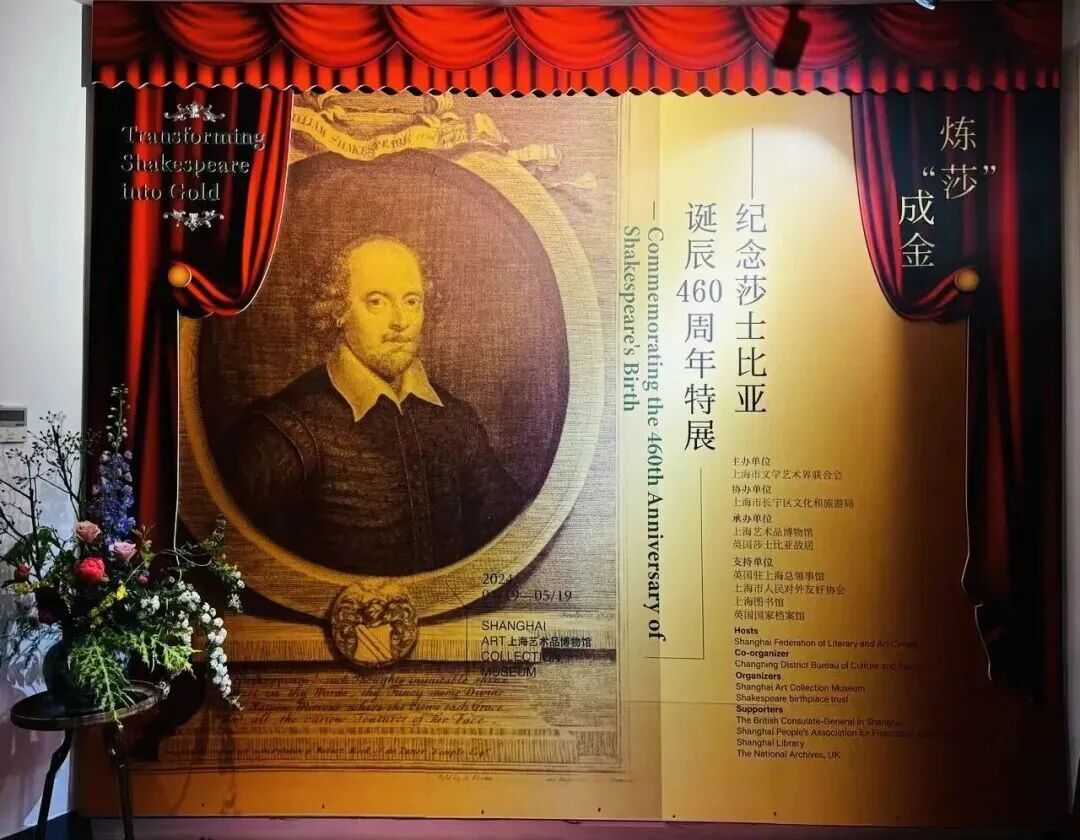 Transforming
Shakespeare
into Gold
WILLIAM SHAKESPEARE
炼
“莎”
成
金
——纪念莎士比亚
诞辰460周年特展
— Commemorating the 460th Anniversary of
Shakespeare's Birth
主办单位
上海市文学艺术界联合会
协办单位
上海市长宁区文化和旅游局
承办单位
上海艺术品博物馆
英国莎士比亚故居
支持单位
英国驻上海总领事馆
上海市人民对外友好协会
上海图书馆
英国国家档案馆
Hosts
Shanghai Federation of Literary and Art
Co-organizer
Changning District Bureau of Culture and
Organizers
Shanghai Art Collection Museum
Shakespeare birthplace trust
Supporters
The British Consulate-General in Shanghai
Shanghai People's Association for
Shanghai Library
The National Archives, UK
2024
05/19
SHANGHAI
ART 上海艺术品博物馆
COLLECTION
MUSEUM